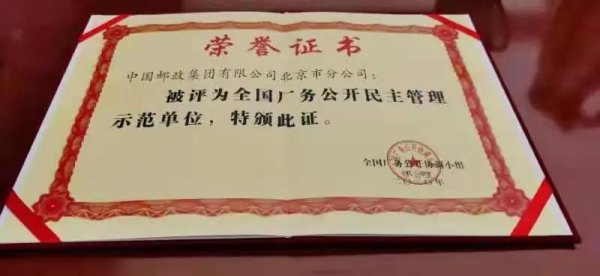 荣誉证书
中国邮政集团有限公司北京市分公司：
被评为全国厂务公开民主管理
示范单位，特颁此证。
全国厂务公开协调小组